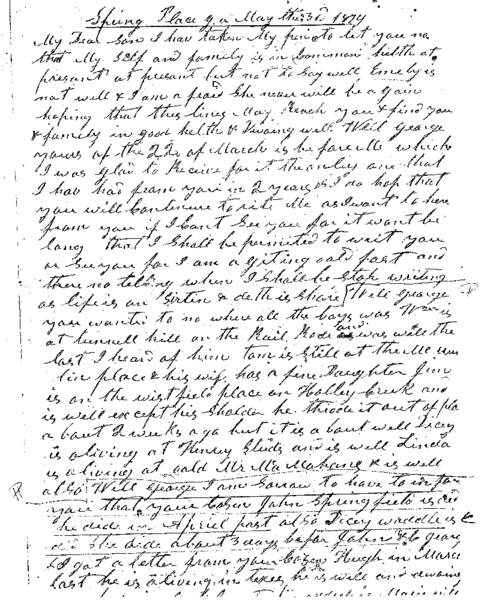 Spring Place g.a May the 3d 1879
My Dear Son I hav taken My pen to let you no
that My Self and family is in Common helth at
presant at presant but not to Say well Emely is
not well & I am a fraid She never will be a gain
hoping that thes lines May Reach you & find you
& family in good helth & Duaing well Well George
yours of the 22d of March is be fore Me which
I was glad to Receive for it the only one that
I hav had from you in 2 years & I do hop that
you will Continure to rite Me as I want to here
from you if I Cant See you for it wont be
long that I Shall be permited to wait you
or See you for I am a giting oald fast and
there no telling when I Shall be Stop writing
as life is on Sirtin & deth is Shure Well George
you wanted to no where all the boys was W is
at tunnell hill on the Rail Rode and was well the
last I heard of him tom is Still at the
place & his wife has a fine Daughter Jim
is on the westfield place on Holley Creek and
is well except his Sholder he throde it out of pla
a bout 2 weeks a go but it is a bout well Dicey
is a living at Henry and is well Linda
is a living at oald Mr Ma Mahans & is well
also Well George I am Sorrow to have to in for
you that your Cosen John Springfield is
he dide in Apriel past also Dicey is
She dide about 3 days befor John &
I got a letter from your Cosen Hugh in March
last he is a living in texes he is well and